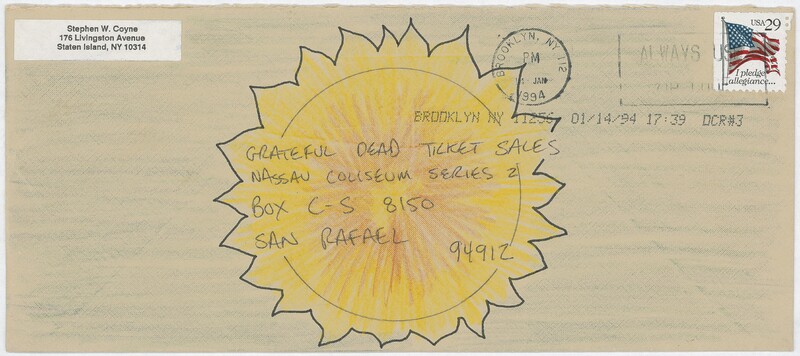 Stephen W. Coyne
176 Livingston Avenue
Staten Island, NY 10314
BROOKLYN, NY 112
PM
JAN
1994
ALWAYS
USA 29
I pledge
allegiance...
BROOKLYN NY 11256 01/14/94 17:39 DCR#3
GRATEFUL DEAD TICKET SALES
NASSAU COLISEUM SERIES 2
BOX C-S 8150
SAN RAFAEL 94912